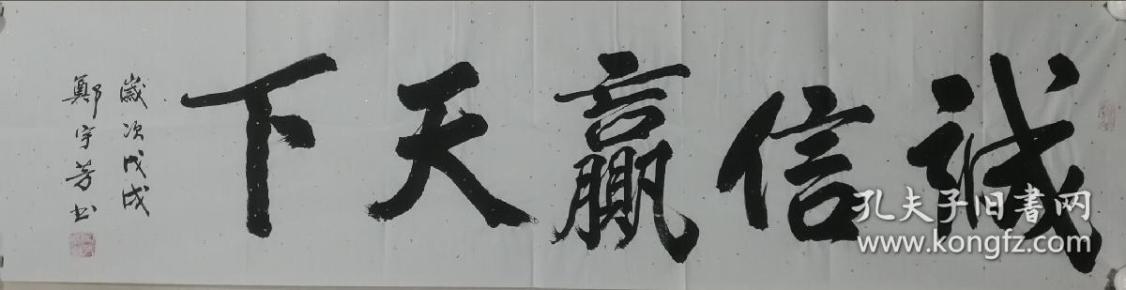 誠信贏天下
歲次戊戌
鄭宇芳书
孔夫子旧书网
www.kongfz.com